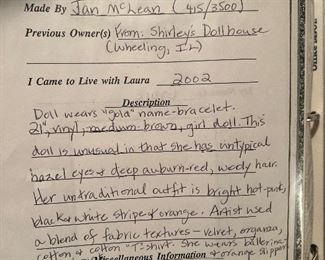 Made By Jan McLean (415/3500)
Previous Owner(s) From: Shirley's Dollhouse
(Wheeling, IL)
I Came to Live with Laura 2002
Description
Doll wears "gold" name-bracelet.
21", vinyl, medium brown, girl doll. This
doll is unusual in that she has untypical
hazel eyes & deep auburn-red, wooly hair.
Her untraditional outfit is bright hot-pink,
black & white stripe & orange. Artist used
a blend of fabric textures - velvet, organza,
cotton & cotton "T-shirt. She wears ballerina-
Miscellaneous Information & orange slippers